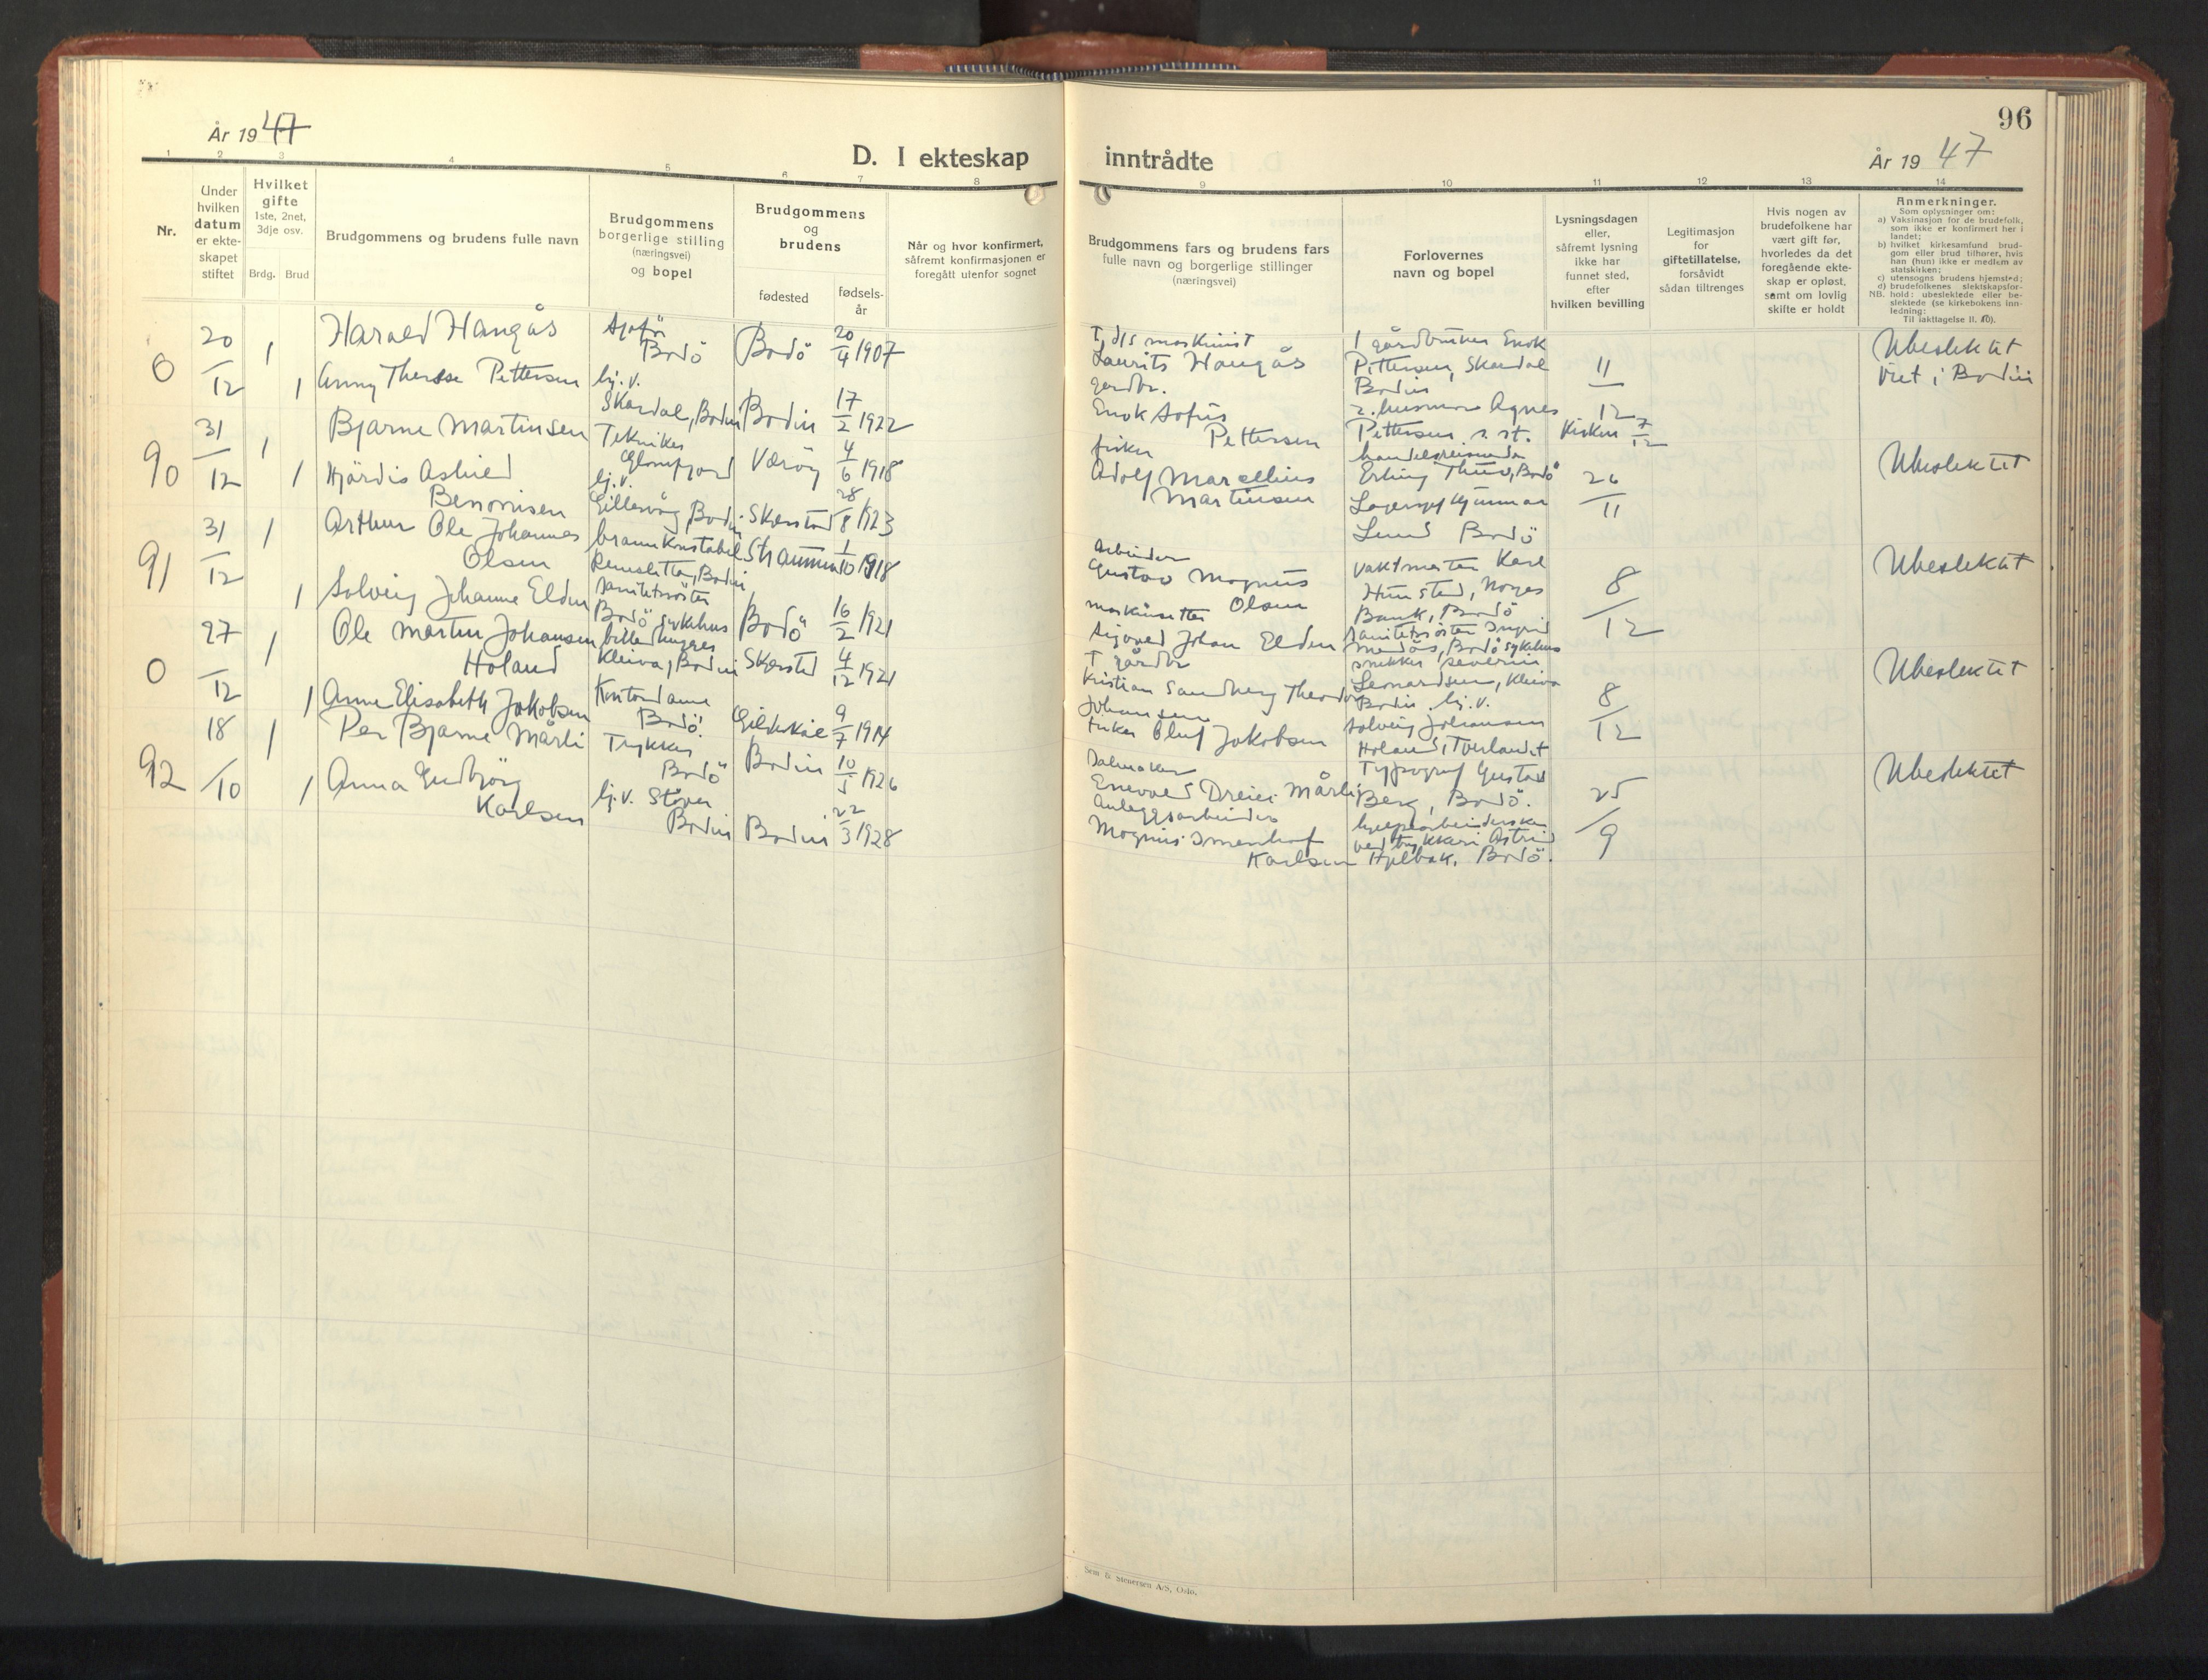 År 1947
D. I ekteskap
1 2 3 4 5 6 7 8
Nr.
Under hvilken datum er ekteskapet stiftet
Hvilket gifte 1ste, 2net, 3dje osv.
Brdg. Brud
Brudgommens og brudens fulle navn
Brudgommens borgerlige stilling (næringsvei) og bopel
Brudgommens og brudens
fødested
fødselsår
Når og hvor konfirmert, såfremt konfirmasjonen er foregått utenfor sognet
0 20/12 1 Harald Haugås
Sjøfør
Bodö Bodö 20/4 1907
1 Anny Therese Pettersen
hj.v.
Skardal, Bodin Bodin 17/2 1922
90 31/12 1 Bjarne Martinsen
Tekniker
Glomfjord Væröy 4/6 1918
1 Hjördis Astrid
Benonisen
hj.v.
Gillesvåg, Bodin Skjerstad 28/8 1923
91 31/12 1 Arthur Ole Johannes
Olsen
brannkonstabel
Rensletta, Bodin Straumen 1/10 1918
1 Solveig Johanne Elden
sanitetssöster
Bodö sykehus Bodö 16/2 1921
0 27/12 1 Ole Martin Johansen
Höland
billedhugger
Kleiva, Bodin Skjerstd 4/12 1921
1 Anne Elisabeth Jakobsen
Kontordame
Bodö. Gildeskål 9/7 1914
92 18/10 1 Per Bjarne Mårli
Trykker
Bodö Bodin 10/5 1926
1 Anna Gudbjörg
Karlsen
hj.v. Stöver
Bodin Bodin 22/3 1928
96
inntrådte
År 1947
9 10 11 12 13 14
Brudgommens fars og brudens fars fulle navn og borgerlige stillinger (næringsvei)
Forlovernes navn og bopel
Lysningsdagen eller, såfremt lysning ikke har funnet sted, efter hvilken bevilling
Legitimasjon for giftetillatelse, forsåvidt sådan tiltrenges
Hvis nogen av brudefolkene har vært gift før, hvorledes da det foregående ekteskap er opløst, samt om lovlig skifte er holdt
Anmerkninger.
Som oplysninger om:
a) Vaksinasjon for de brudefolk, som ikke er konfirmert her i landet;
b) hvilket kirkesamfund brudgom eller brud tilhører, hvis han (hun) ikke er medlem av statskirken;
c) utensogns brudens hjemsted;
d) brudefolkenes slektskapsforhold: ubeslektede eller beslektede (se kirkebokens innledning:
NB. Til iakttagelse II. 10).
†, d/s maskinist
Laurits Haugås
gardbr.
Enok Sofus
Pettersen
1 gårdbruker Enok
Pettersen, Skardal
Bodin
2. husmor Agnes
Pettersen s. st.
11/12
Kirken 7/12
Ubeslektet
Viet i Bodin
fisker
Adolf Marcellius
Martinsen
handelsreisende
Erling Thuv, Bodö
Gunnar
Lund Bodö
26/11
Ubeslektet
Arbeider
Gustav Magnus
Olsen
maskinsetter
Sigvard Johan Elden
Vaktmester Karl
Hunstad, Norges
Bank, Bodö
sanitetssöster Ingrid
Medås, Bodö sykehus
8/12
Ubeslektet
† gårdbr
Kristian Sandberg Theodor
Johansen
fisker Oluf Jakobsen
snekker Severin
Leonardsen, Kleiva
Bodin. hj.v.
Solveig Johansen
Höland, Tverlandet
8/12
Ubeslektet
Salmaker
Enevold Dreier Mårli
Anleggsarbeider
Magnus
Karlsen
Typograf Gustav
Berg, Bodö.
hjelpearbeiderske
ved trykkeri Astrid
Hjelbak, Bodö.
25/9
Ubeslektet
Sem & Stenersen A/S, Oslo.